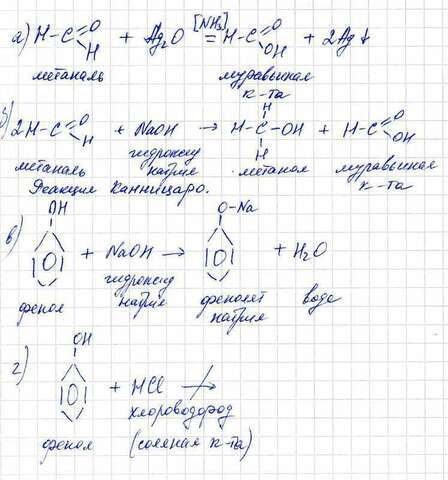 а) H-C=O H + Ag₂O [NH₃] = H-C=O OH + 2Ag↓
метаналь муравьиная к-та
б) 2H-C=O H + NaOH → H-C-OH H H + H-C=O OH
метаналь гидроксид натрия метанол муравьиная к-та
Реакция Канницаро.
в) OH + NaOH → O-Na + H₂O
фенол гидроксид натрия фенолят натрия вода
г) OH + HCl →
фенол хлороводород (соляная к-та)